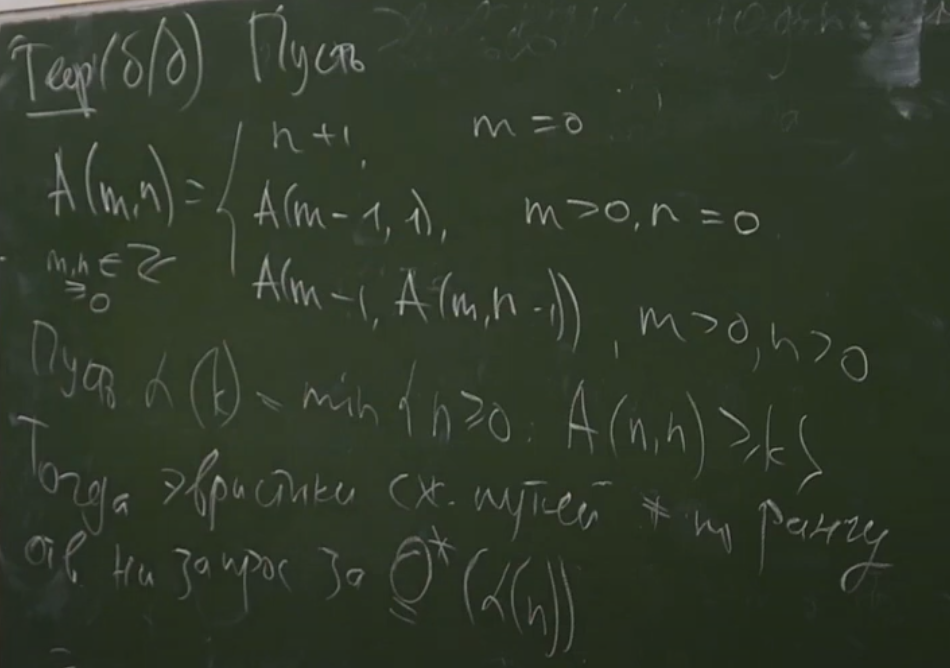 Теор(б/д) Пусть
n+1, m=0
A(m,n) = { A(m-1, 1), m>0, n=0
m,n ∈ ℤ ≥0
A(m-1, A(m,n-1)), m>0, n>0
Пусть α(k) = min{n≥0: A(n,n) ≥ k}
Тогда эвристики сж. путей + по рангу
отв. на запрос за O*(α(n))